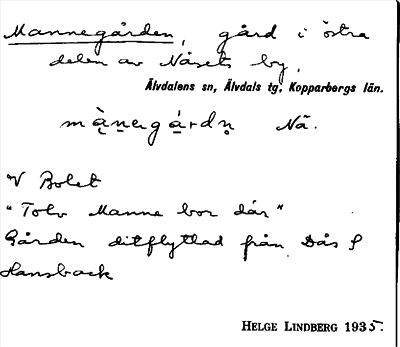 Mannegården, gård i östra
delen av Nåsets by,
Älvdalens sn, Älvdals tg, Kopparbergs län.
Nå.
V Bolet
"Tolv Manne bor där"
Gården ditflyttad från Dås
Hansback
HELGE LINDBERG 1935.